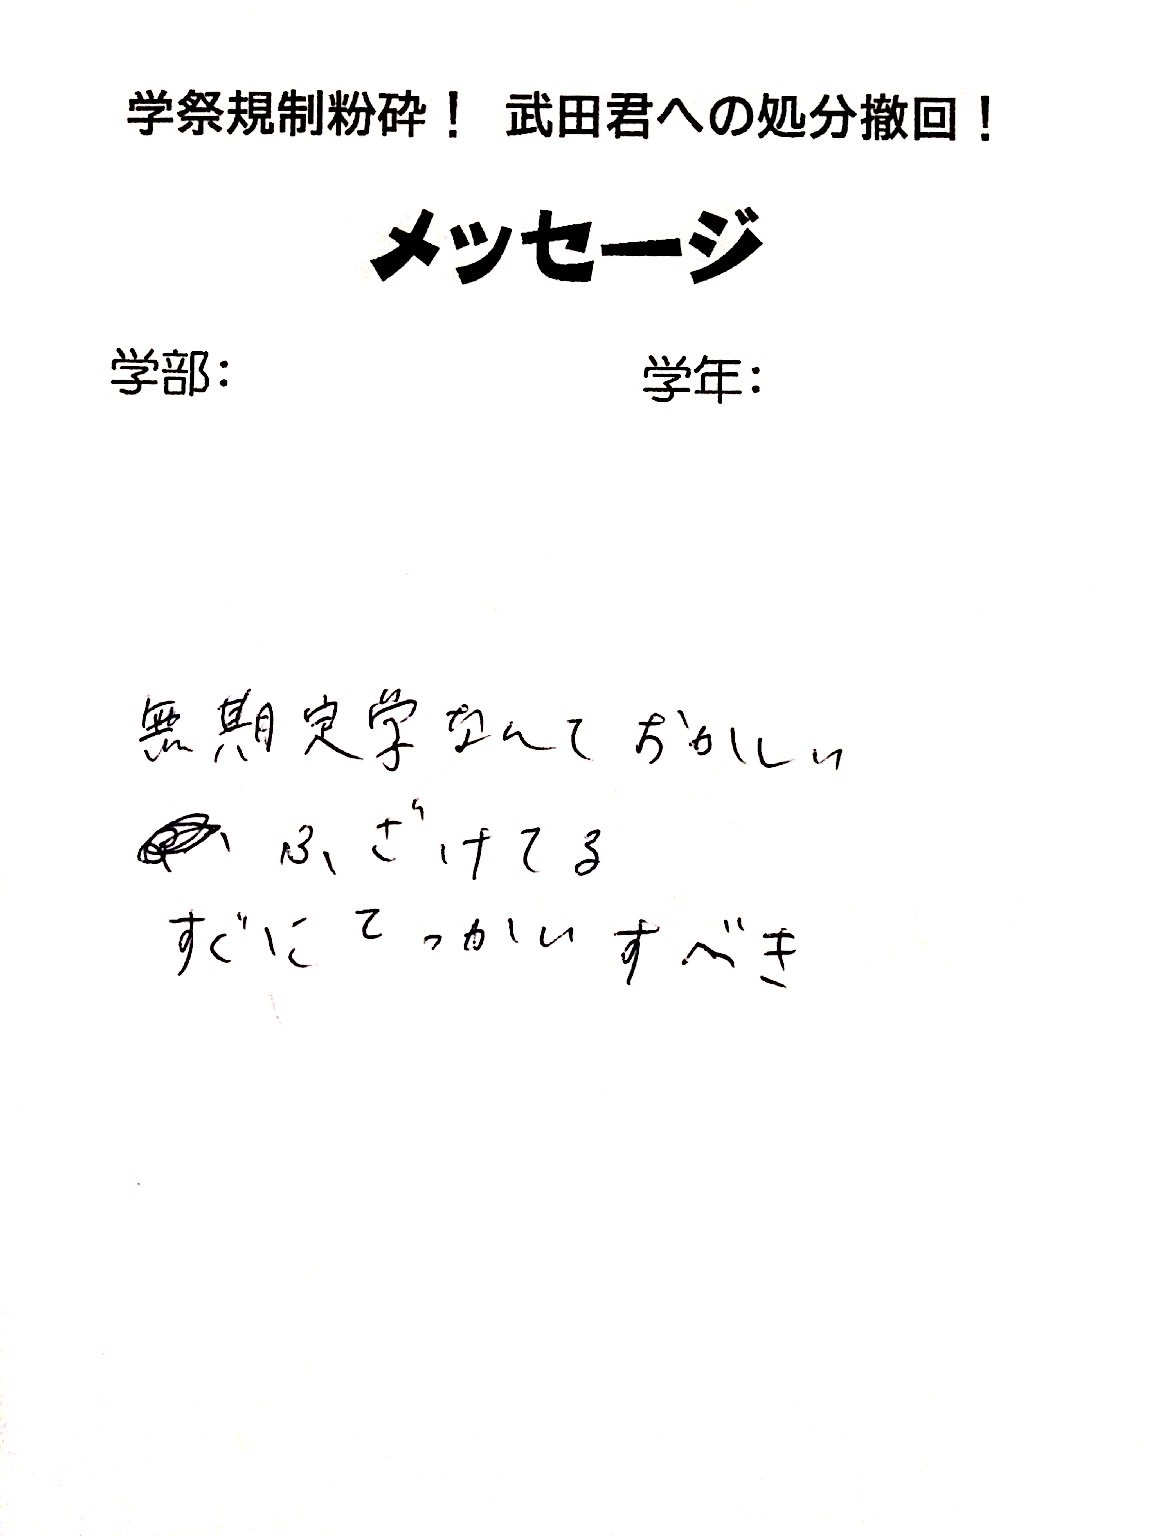 学祭規制粉砕！ 武田君への処分撤回！
メッセージ
学部：
学年：
無期定学なんておかしい
ふざけてる
すぐにてっかいすべき